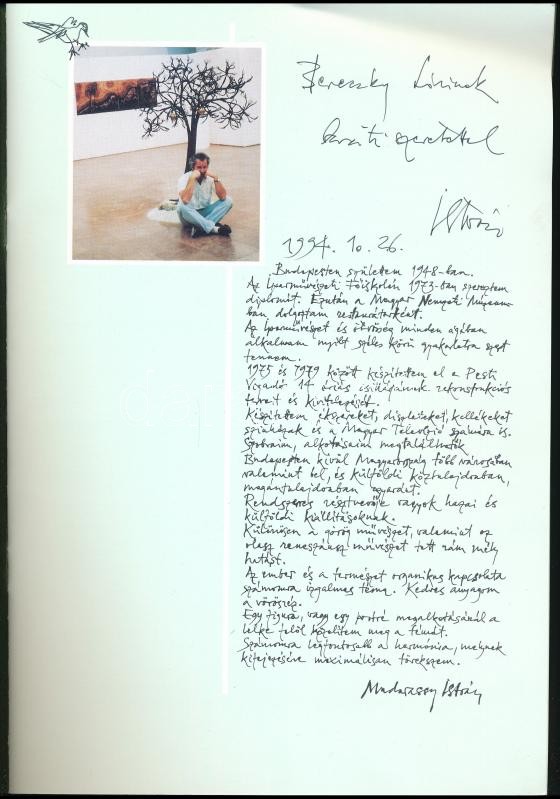 Bereczky Lórinak
baráti szeretettel
István
1994. 10. 26.
Budapesten születtem 1948-ban.
Az Iparművészeti Főiskolán 1973-ban szereztem
diplomát. Ezután a Magyar Nemzeti Múzeum-
ban dolgoztam restaurátorként.
Az iparművészet és ötvösség minden ágában
alkalmam nyílt széles körű gyakorlatra szert
tennem.
1975 és 1979 között készítettem el a Pesti
Vigadó 14 óriás csillárjának rekonstrukciós
terveit és kivitelezését.
Készítettem ékszereket, díszleteket, kellékeket
színházak és a Magyar Televízió számára is.
Szobraim, alkotásaim megtalálhatók
Budapesten kívül Magyarország több városában
valamint bel, és külföldi köztulajdonban,
magántulajdonban egyaránt.
Rendszeres résztvevője vagyok hazai és
külföldi kiállításoknak.
Különösen a görög művészet, valamint az
olasz reneszánsz művészet tett rám mély
hatást.
Az ember és a természet organikus kapcsolata
számomra izgalmas téma. Kedves anyagom
a vörösréz.
Egy figura, vagy egy portré megalkotásánál a
lélek felől közelítem meg a témát.
Számomra legfontosabb a harmónia, melynek
kifejezésére maximálisan törekszem.
Madarassy István